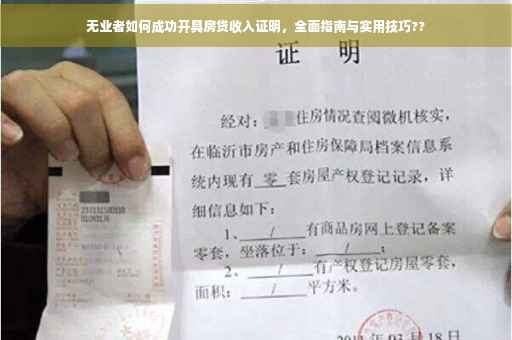 无业者如何成功开具房贷收入证明，全面指南与实用技巧??
证 明
经对：住房情况查阅微机核实，
在临沂市房产和住房保障局档案信息系
统内现有 零 套房屋产权登记记录，详
细信息如下：
1、 / 有商品房网上登记备案
零套，坐落位于： / ；
2、 / 有产权登记房屋零套，
面积： / 平方米。
03月18日